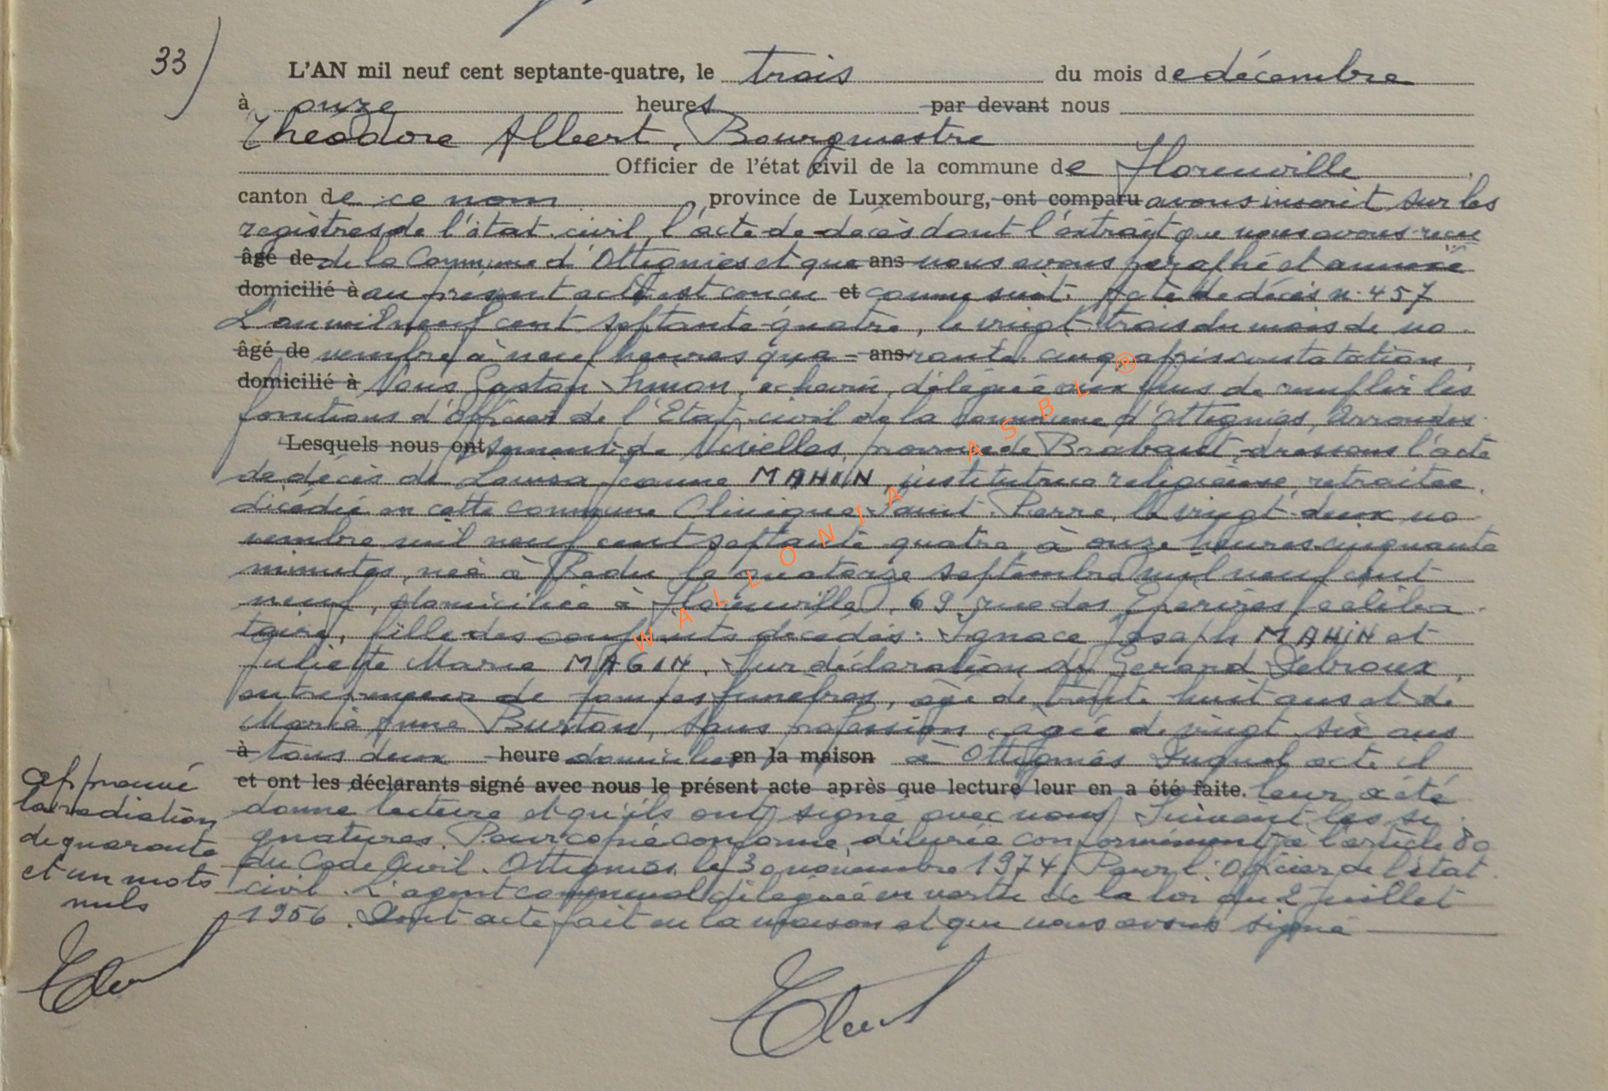 33)
L'AN mil neuf cent septante-quatre, le trois du mois de décembre
à onze heures par devant nous
Théodore Albert, Bourgmestre
Officier de l'état civil de la commune de Florenville
canton de ce nom, province de Luxembourg, ont comparu avons inscrit sur les
registres de l'état civil, l'acte de décès dont l'extrait que nous avons reçu
âgé de de la Commune d'Ottignies et que ans nous avons paraphé et annexé
domicilié à au présent acte est conçu et comme suit. Acte de décès n° 457
L'an mil neuf cent septante quatre, le vingt trois du mois de no-
âgé de vembre à neuf heures qua- ans rante cinq après constatation,
domicilié à Nous Gaston échevin, délégué aux fins de remplir les
fonctions d'Officier de l'Etat-civil de la Commune d'Ottignies, Arrondis-
Lesquels nous ont sement de Nivelles, province de Brabant, dressons l'acte
de décès de Jeanne MAHIN, institutrice religieuse, retraitée,
décédée en cette commune Clinique Saint-Pierre, le vingt-deux no-
vembre mil neuf cent septante quatre, à onze heures cinquante
minutes, née à Redu le quatorze septembre mil neuf cent
neuf, domiciliée à Florenville, 69, rue des Epérires, céliba-
taire, fille des conjoints décédés: Ignace Joseph MAHIN et
Juliette Marie MAGIN. Sur déclaration de Gérard Debroux,
entrepreneur de pompes funèbres, âgé de trente huit ans et de
Marie Anne Burton, sans profession, âgée de vingt six ans
à tous deux heure domiciliés en la maison à Ottignies Duquel acte il
et ont les déclarants signé avec nous le présent acte après que lecture leur en a été faite. leur a été
donné lecture et qu'ils ont signé avec nous. Suivent les si-
gnatures. Pour copie conforme délivrée conformément à l'article 80
du Code Civil. Ottignies, le 30 novembre 1974. Pour l'Officier de l'état
civil. L'agent communal délégué en vertu de la loi du 2 juillet
1956. Dont acte fait en la maison et que nous avons signé
approuvé
la radiation
de quarante
et un mots
nuls
WALLONIA ASBL ®